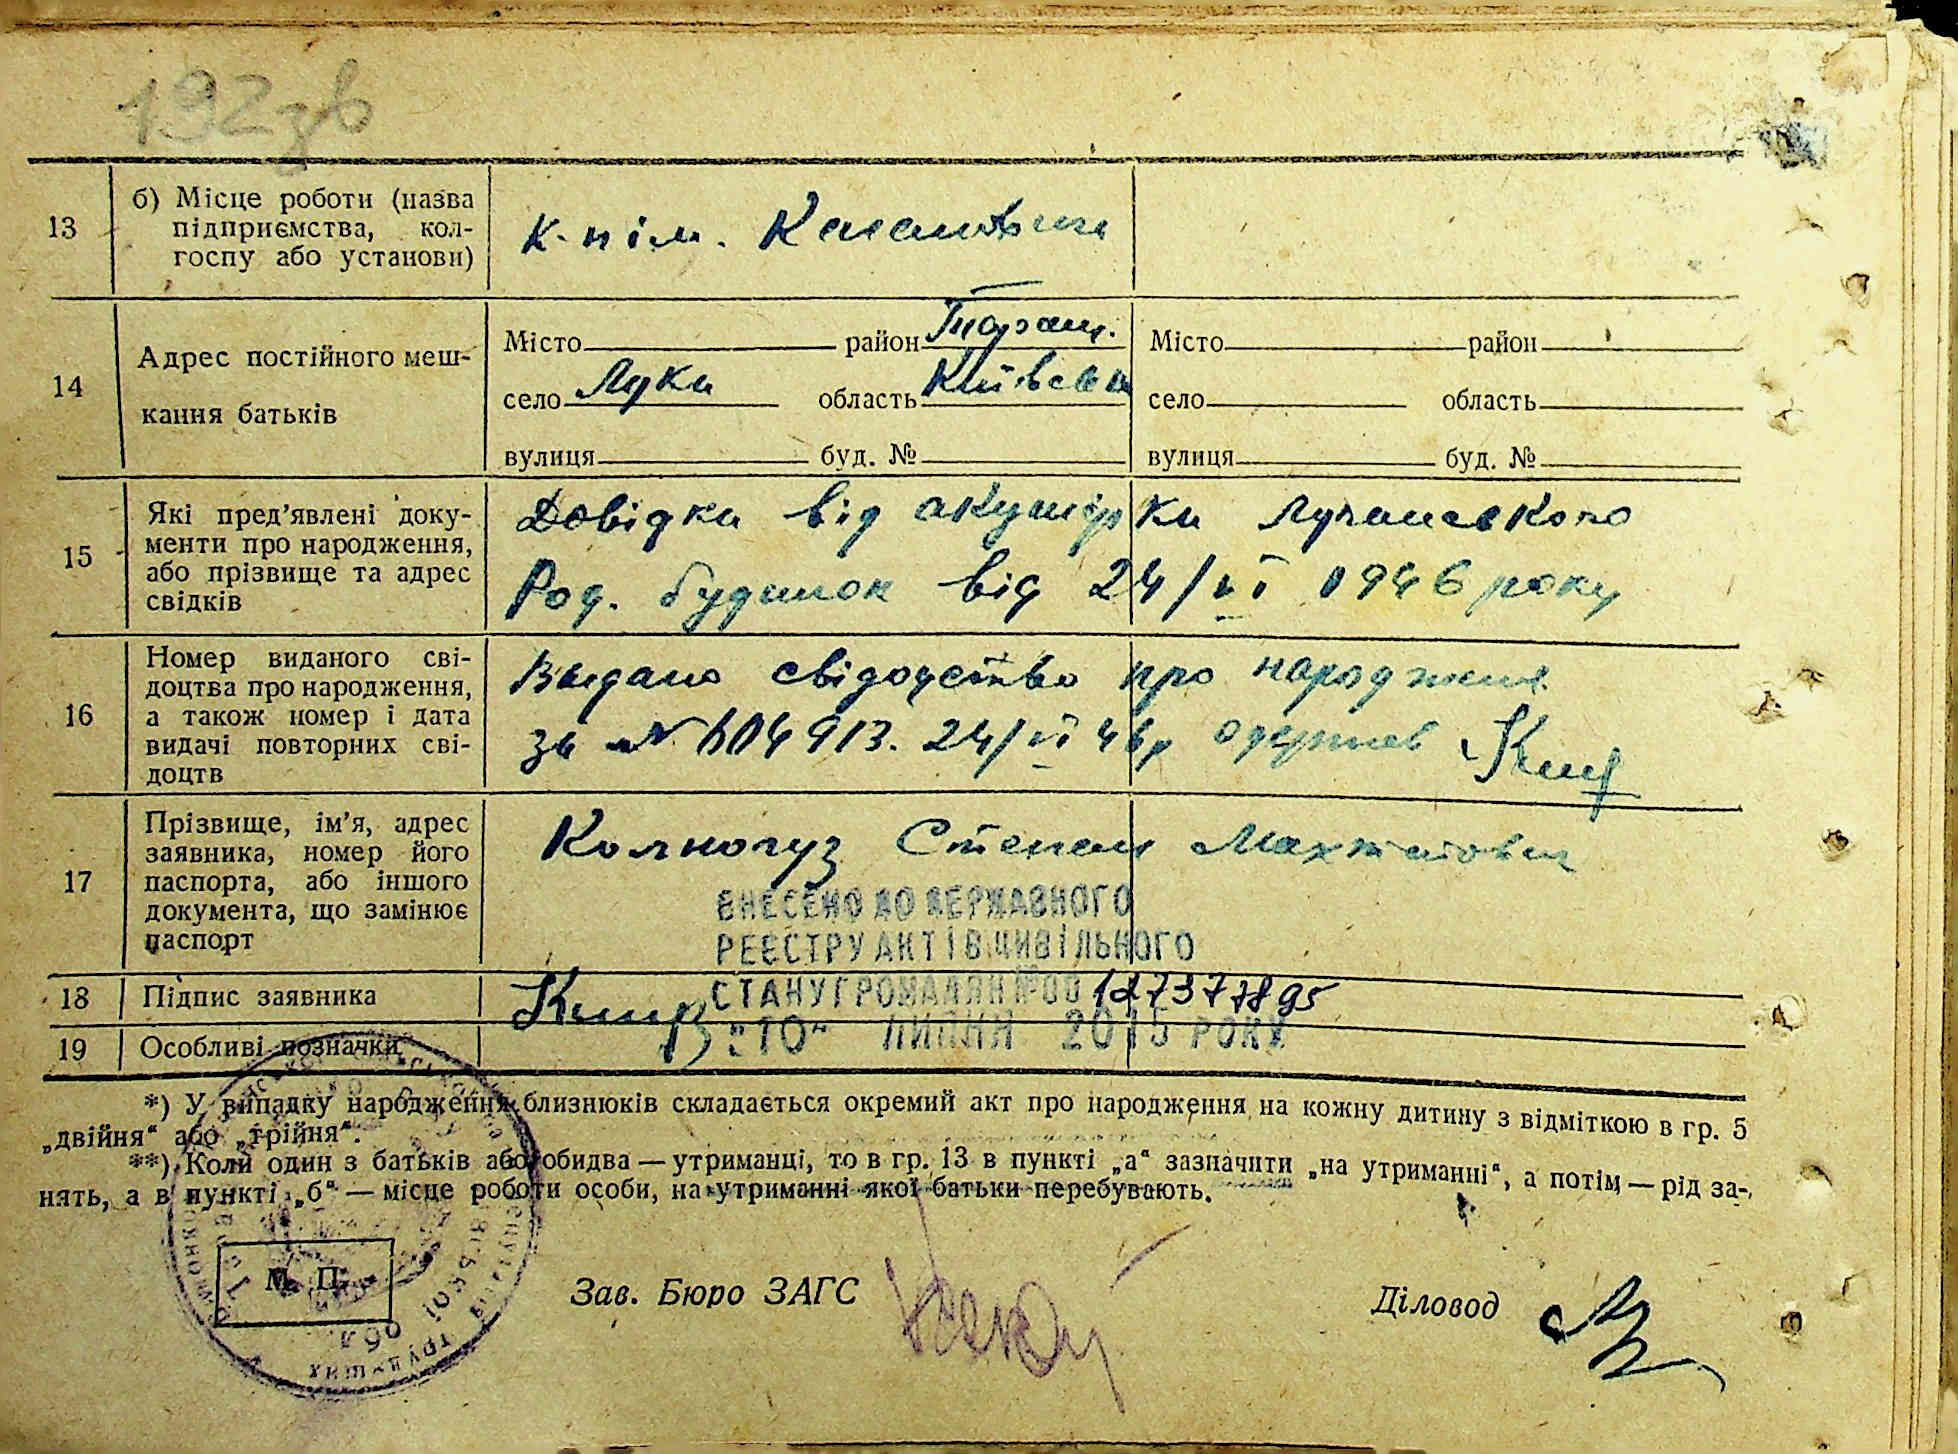 192зв
13
б) Місце роботи (назва
підприємства, кол-
госпу або установи)
к-п ім.
14
Адрес постійного меш-
кання батьків
Місто район Таращ.
село Лука область Київська
вулиця буд. №
Місто район
село область
вулиця буд. №
15
Які пред’явлені доку-
менти про народження,
або прізвище та адрес
свідків
Довідка від акушірки Лучанського
Род. будинок від 24/VI 1946 року
16
Номер виданого сві-
доцтва про народження,
а також номер і дата
видачі повторних сві-
доцтв
Видано свідоцтво про народження
за № 604913. 24/VI 46р одержав
17
Прізвище, ім’я, адрес
заявника, номер його
паспорта, або іншого
документа, що замінює
паспорт
Колногуз Степан
ВНЕСЕНО ДО ДЕРЖАВНОГО
РЕЄСТРУ АКТІВ ЦИВІЛЬНОГО
СТАНУ ГРОМАДЯН №00127377895
"10" ЛИПНЯ 2015 РОКУ
18
Підпис заявника
19
Особливі позначки
*) У випадку народження близнюків складається окремий акт про народження на кожну дитину з відміткою в гр. 5
„двійня“ або „трійня“.
**) Коли один з батьків або обидва — утриманці, то в гр. 13 в пункті „а“ зазначити „на утриманні“, а потім — рід за-
нять, а в пункті „б“ — місце роботи особи, на утриманні якої батьки перебувають.
М. П.
Зав. Бюро ЗАГС
Діловод